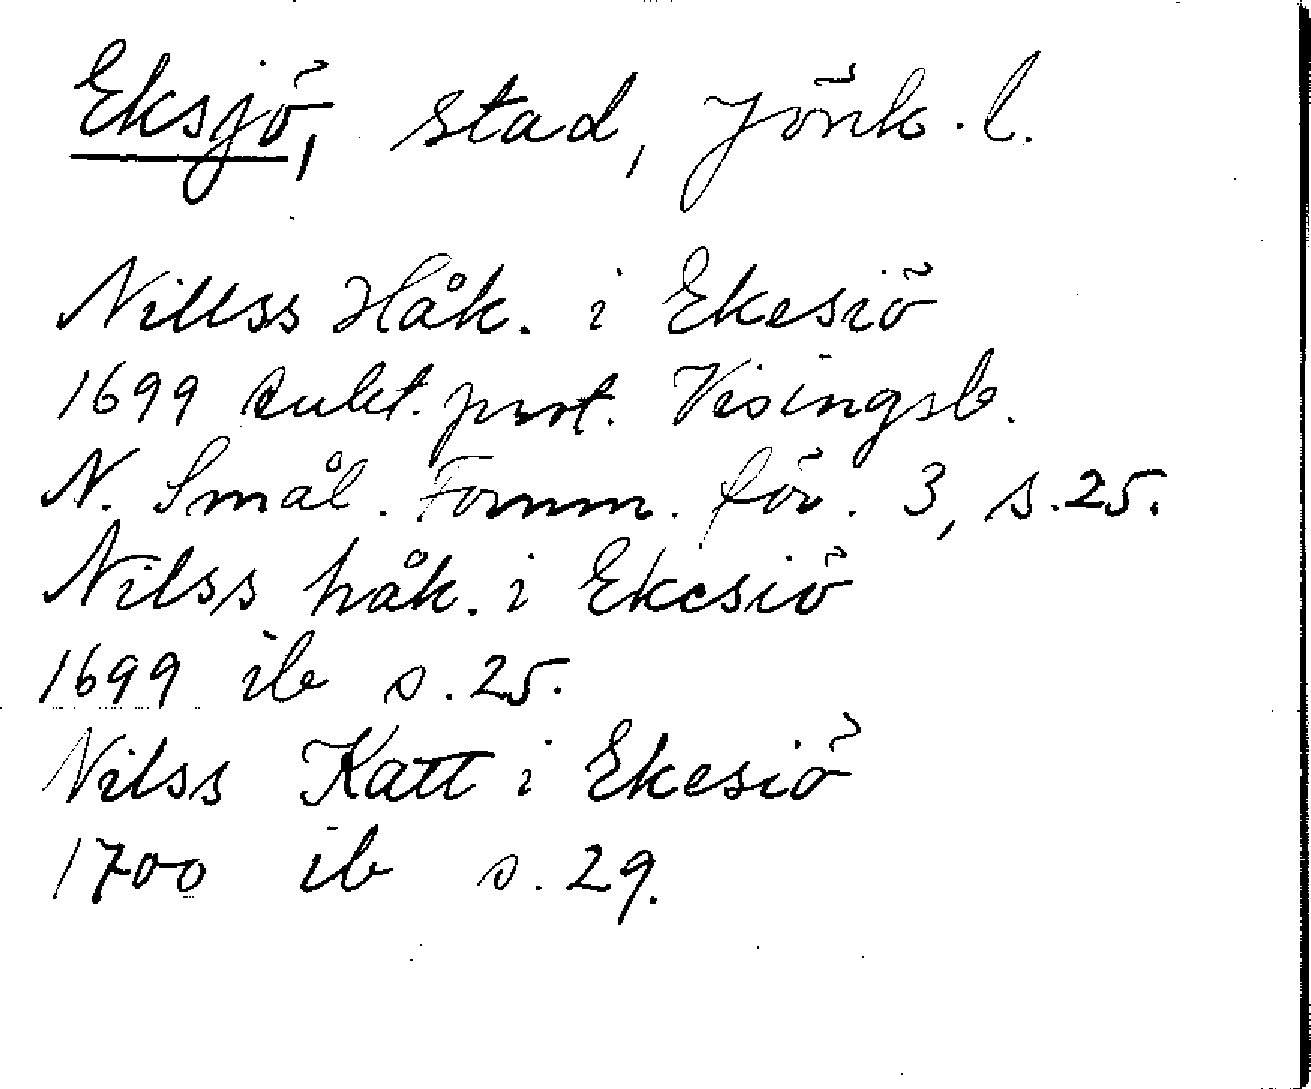 Eksjö, stad, Jönk. l.
Nillss Håk. i Ekesiö
1699 Aukt. prot. Visingsb.
N. Smål. Fornm. för. 3, s. 25.
Nilss håk. i Ekesiö
1699 ib s. 25.
Nilss Katt i Ekesiö
1700 ib s. 29.